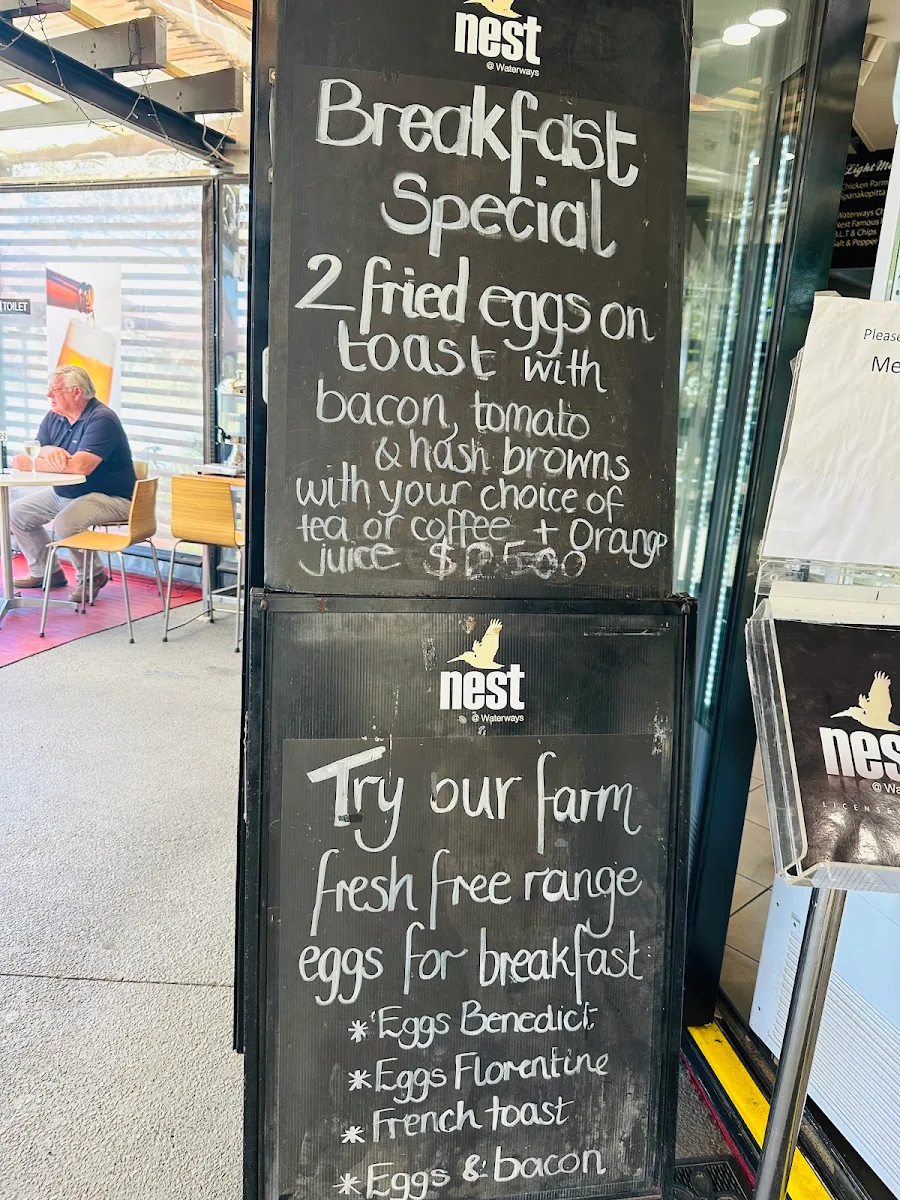 nest
@ Waterways
Breakfast
Special
2 fried eggs on
toast with
bacon, tomato
& hash browns
with your choice of
tea or coffee + Orange
juice
nest
@ Waterways
Try our farm
fresh free range
eggs for breakfast
* Eggs Benedict
* Eggs Florentine
* French toast
* Eggs & bacon
TOILET
Light
Chicken
Spanakopitta
Waterways
Nest Famous
B.L.T & Chips
Salt & Pepper
Please
nest